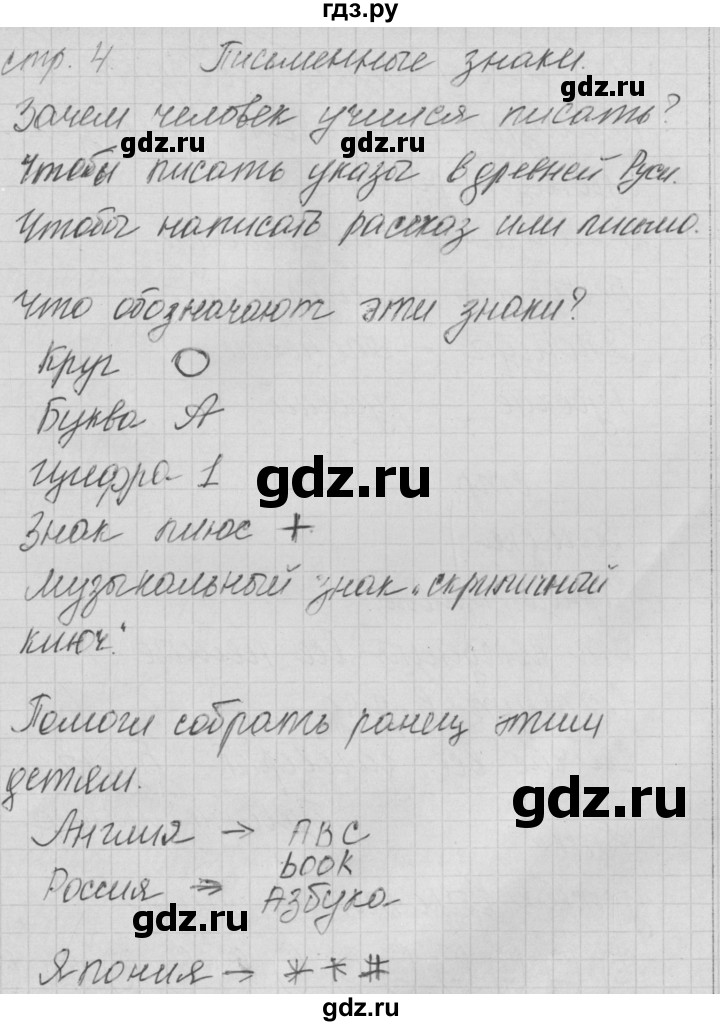 гдз.ру
стр. 4. Письменные знаки.
gdz.ru
Зачем человек учился писать?
gdz.ru gdz.ru
Чтобы писать указы в древней Руси.
Чтобы написать рассказ или письмо.
Что обозначают эти знаки?
Круг O
Буква А
Цифра 1
gdz.ru
Знак плюс +
Музыкальный знак „скрипичный
ключ."
Помоги собрать ранец этим
детям.
gdz.ru
Англия → ABC
book
Россия → Азбука
gdz.ru
Япония → * * #
gdz.ru